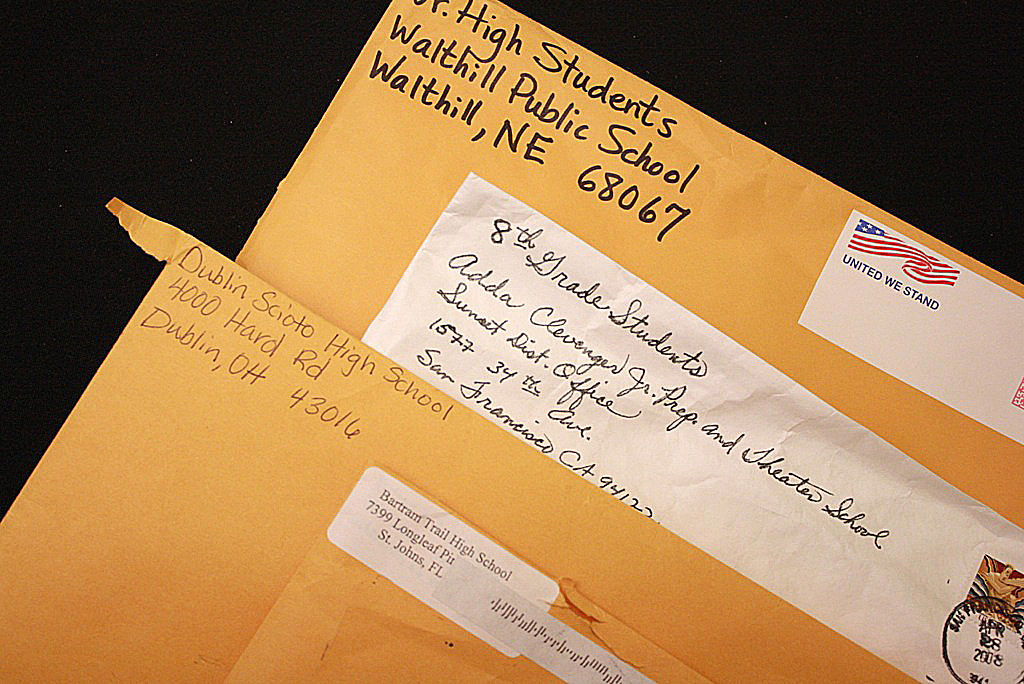 Jr. High Students
Walthill Public School
Walthill, NE 68067
UNITED WE STAND
8th Grade Students
Adda Clevenger Jr. Prep. and Theater School
Sunset Dist. Office
1577 34th Ave.
San Francisco CA 94122
APR
28
2008
Dublin Scioto High School
4000 Hard Rd
Dublin, OH 43016
Bartram Trail High School
7399 Longleaf Pi
St. Johns, FL